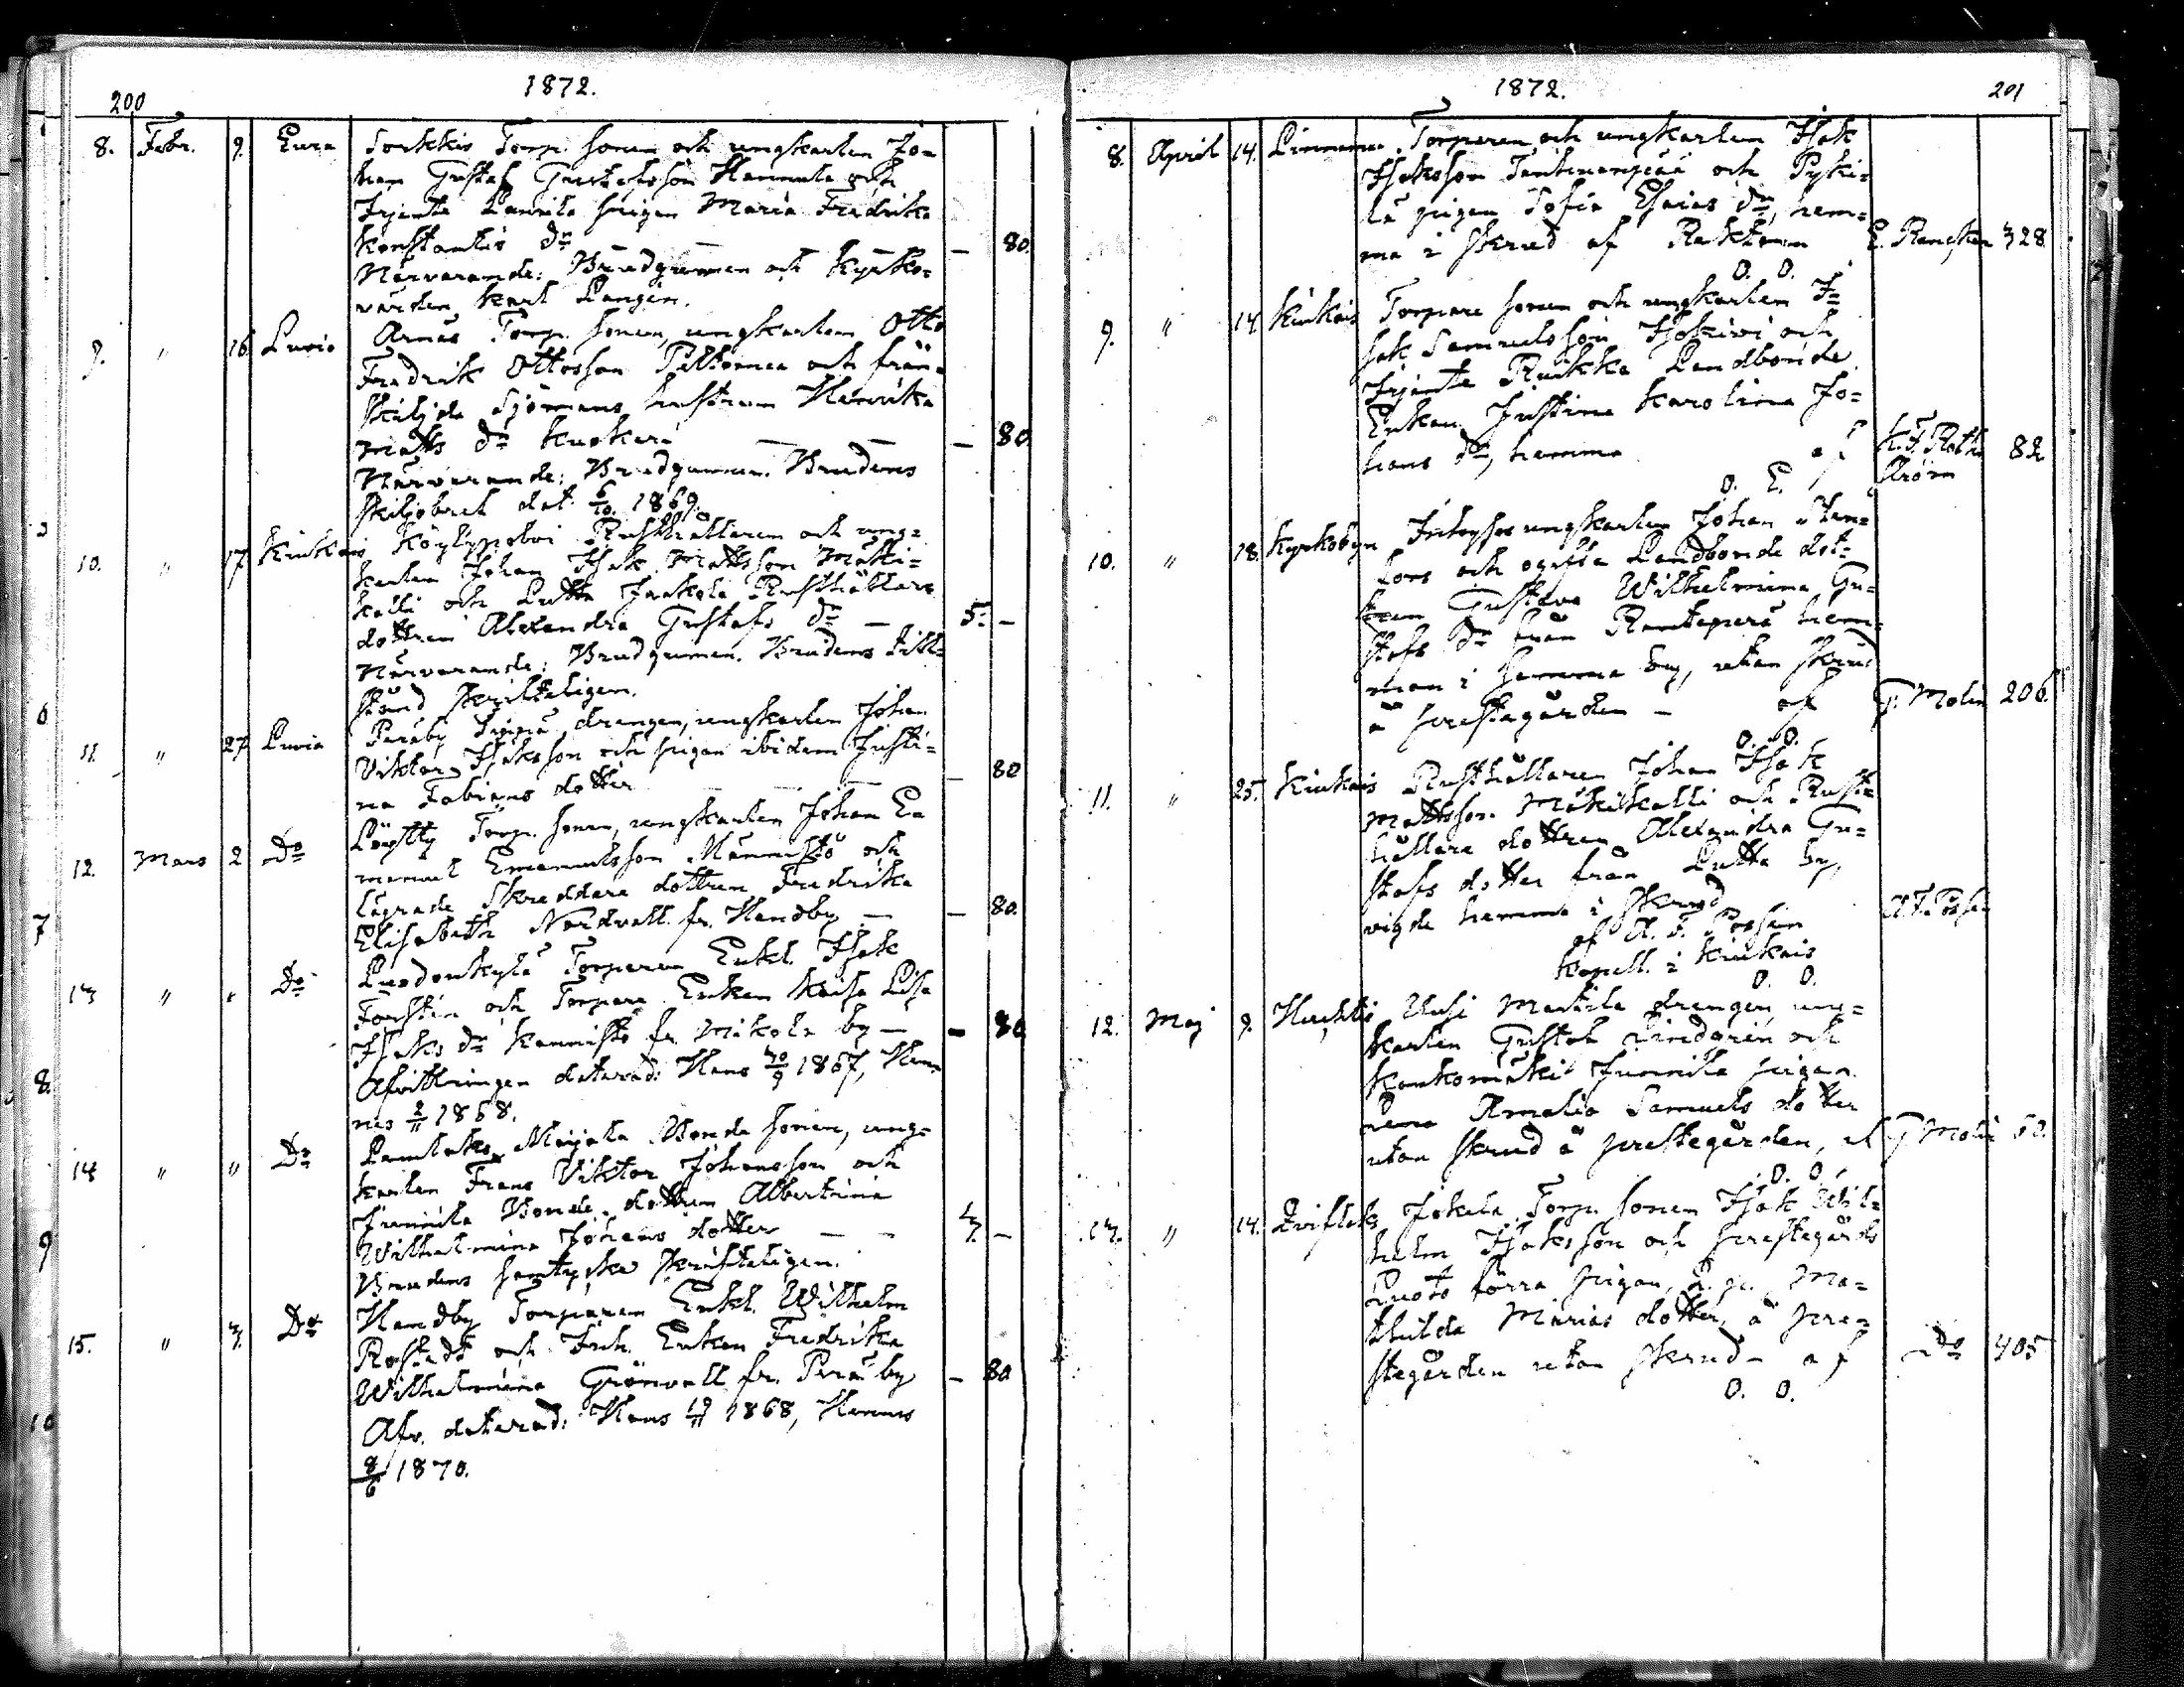 200
1872.
8. Febr. 9. Eura Sorkkis Torp. sonen och ungkarlen Jo-
han Gustaf Gustafsson Hannula och
Irjante pigan Maria Fredrika
Konstantis dr — — 80.
Närvarande: Brudgummen och Kyrko-
värden Karl Langén.
9. " 16. Luvia Arnäs Torp. sonen, ungkarlen Otto
Fredrik Ottosson och från-
skiljda Sjömans hustrun Henrika
Matts dr — — — 80
Närvarande: Brudgummen. Brudens
skiljobref dat. 6/10 1869.
10. " 17. Kiukais Köylypolvi Rusthållaren och ung-
karlen Johan Isak Mattsson Mäki-
kalli och Lutta Jaakola Rusthållare
dottren Alexandra Gustafs dr — 5. —
Närvarande: Brudgumen. Brudens till-
stånd skriftligen.
11. " 27. Luvia Peräby drengen, ungkarlen Johan
Viktor Isaksson och pigan ibidem Justi-
na Fabians dotter — — — 80
12. Mars 2 Do Löytty Torp. sonen, ungkarlen Johan E-
manuel Emanuelsson Männistö och
Skreddare dottren Fredrika
Elisabeth Nordvall fr. Hanby — — 80.
13 " " Do Torparen Enkl. Isak
Forstén och Torpare Enkan Kaisa Lisa
Isaks dr Kannisto fr. Mikola by — — 80
Afvittringen daterad: Hans 30/9 1867, Hen-
nes 2/11 1868.
14 " " Do Bonde sonen, ung-
karlen Frans Viktor Johansson och
Junnila Bonde dottren Albertina
Wilhelmina Johans dotter — — 3. —
Brudens samtycke skriftligen.
15. " 3. Do Hanby Torparen Enkl. Wilhelm
Rostedt och Inh. Enkan Fredrika
Wilhelmina Grönvall fr. Perä by — 80
Afv. daterad: Hans 19/11 1868, Hennes
8/6 1870.
1872.
201
8. April 14. Torparen och ungkarlen Isak
Isaksson och Pyhi-
tä pigan Sofia Esaias dr, hem-
ma i skrud af Rektorn 328
O. O.
9. " 14. Kiukais Torpare sonen och ungkarlen I-
sak Samuelsson Isokivi och
Irjante Ruikka Landbonde
Enkan Justina Karolina Jo-
hans dr, hemma af K. F. Roth- 82
ström
O. E.
10. " 18. Kyrkobyn Inhyses ungkarlen Johan Sten-
fors och Landbonde dot-
tren Gustava Wilhelmina Gu-
stafs dr från Rantaperä hem-
man i samma by, utan skrud
å prestegården — af G. Molin 206.
O. O.
11. " 25. Kiukais Rusthållaren Johan Isak
Mattsson Mäkikalli och Rust-
hållare dottren Alexandra Gu-
stafs dotter från Lutta by,
vigde hemma i skrud
af A. F. Possin
Kapell. i Kiukais
O. O.
12. Maj 9. Uusi Martila drengen, ung-
karlen Gustaf Lindgrén och
Kaukomäki Junnila pigan
Lena Amalia Samuels dotter
utan skrud å prestegården, af G. Molin
O. O.
13. " 14. Jokela Torp. sonen Isak Wil-
helm Isaksson och prestegårds
pigan, Ma-
thilda Marias dotter, å pre-
stegården utan skrud — af Do 405
O. O.